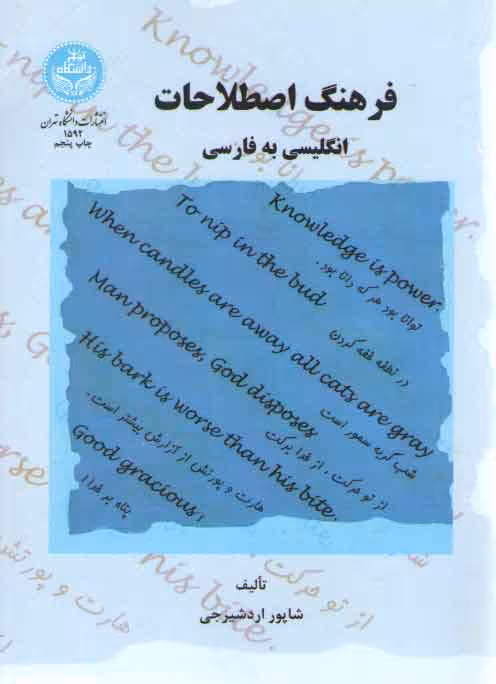 انتشارات دانشگاه تهران
۱۵۹۲
چاپ پنجم
فرهنگ اصطلاحات
انگلیسی به فارسی
Knowledge is power.
توانا بود هر که دانا بود.
To nip in the bud.
در نطفه خفه کردن
When candles are away all cats are gray
شب گربه سمور است
Man proposes, God disposes
از تو حرکت، از خدا برکت
His bark is worse than his bite.
هارت و پورتش از آزارش بیشتر است.
Good gracious!
پناه بر خدا!
تألیف
شاپور اردشیرجی